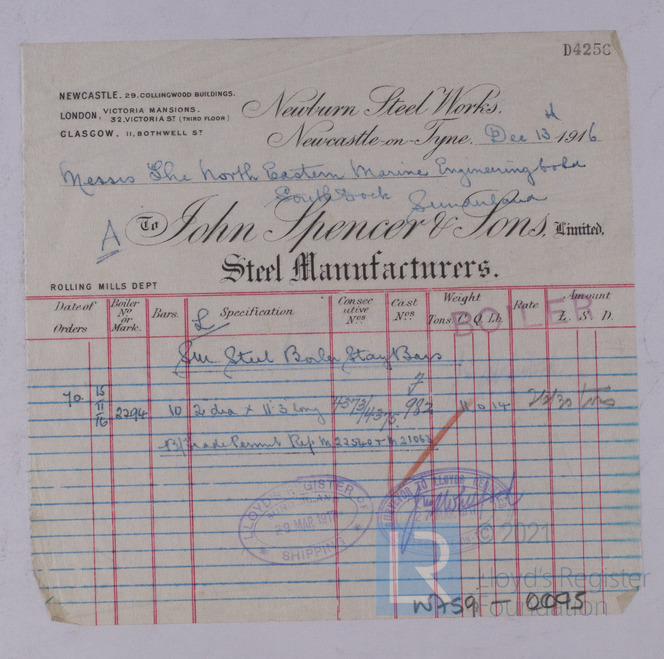 D4256
NEWCASTLE. 29. COLLINGWOOD BUILDINGS.
LONDON, VICTORIA MANSIONS. 32, VICTORIA ST (THIRD FLOOR)
GLASGOW. 11, BOTHWELL ST
Newburn Steel Works.
Newcastle-on-Tyne. Dec 13th 1916
Messrs The North Eastern Marine Engineering Co Ld
South Dock Sunderland
A To John Spencer & Sons, Limited,
Steel Manufacturers.
ROLLING MILLS DEPT
Date of Orders Boiler No or Mark. Bars. Specification Consecutive Nos Cast Nos Weight Tons. C. Q. Lb. Rate Amount £. S. D.
BOILER
L
Sm Steel Boiler Stay Bars
70. 15/11/16 2294 10 2 dia x 11' 3 long 4373/4375 982 11 0 14
B/Trade Permit Ref M 22560 + M 21063
LLOYD'S REGISTER OF
29 MAR 191
SHIPPING
© 2021
Lloyd's Register
Foundation
W759 - 0095